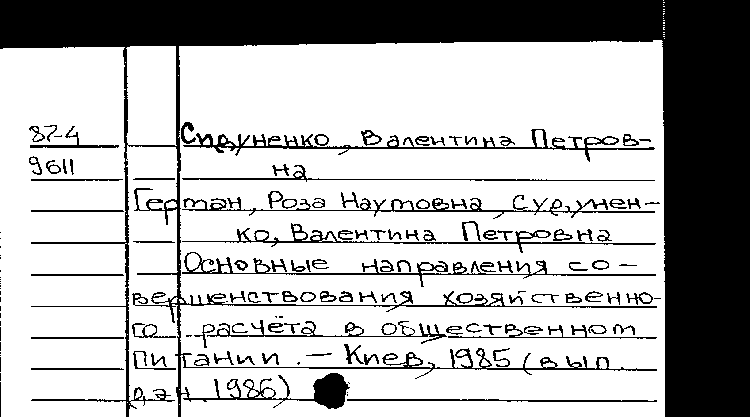 87-4
9611
Сидуненко, Валентина Петров-
на
Гертан, Роза Наумовна, Сидунен-
ко, Валентина Петровна
Основные направления со-
вершенствования хозяйственно-
го расчёта в общественном
питании. — Киев, 1985 (вып.
дан. 1986)